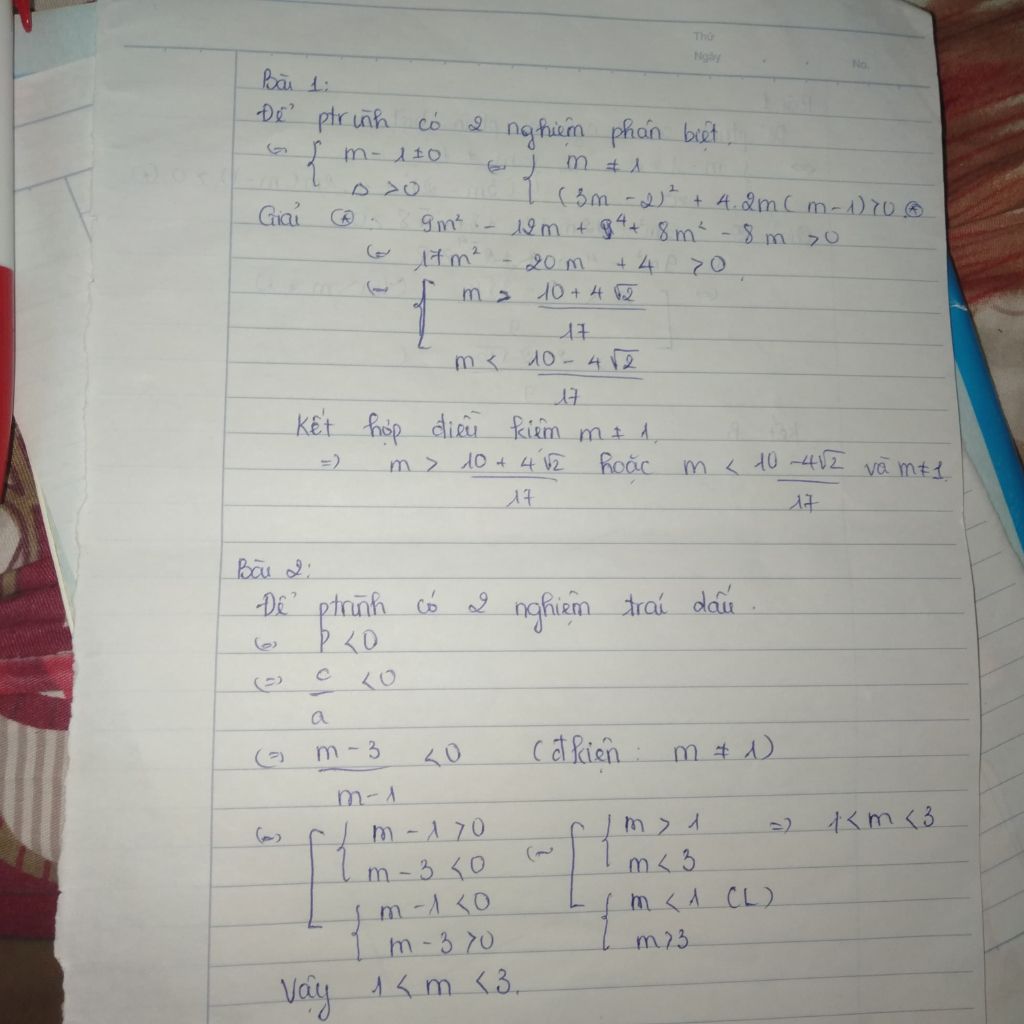 Thứ
Ngày No.
Bài 1:
Để ptrình có 2 nghiệm phân biệt.
⇔ { m - 1 ≠ 0 ⇔ { m ≠ 1
Δ > 0 (3m - 2)² + 4.2m(m - 1) > 0 (*)
Giải (*) : 9m² - 12m + 4 + 8m² - 8m > 0
⇔ 17m² - 20m + 4 > 0.
⇔ [ m > (10 + 4√2)/17
m < (10 - 4√2)/17
Kết hợp điều kiện m ≠ 1.
=> m > (10 + 4√2)/17 hoặc m < (10 - 4√2)/17 và m ≠ 1.
Bài 2:
Để ptrình có 2 nghiệm trái dấu.
⇔ P < 0
⇔ c/a < 0
⇔ (m - 3)/(m - 1) < 0 (đkiện : m ≠ 1)
⇔ [ { m - 1 > 0 ⇔ [ { m > 1 => 1 < m < 3
m - 3 < 0 m < 3
{ m - 1 < 0 { m < 1 (L)
m - 3 > 0 m > 3
Vậy 1 < m < 3.